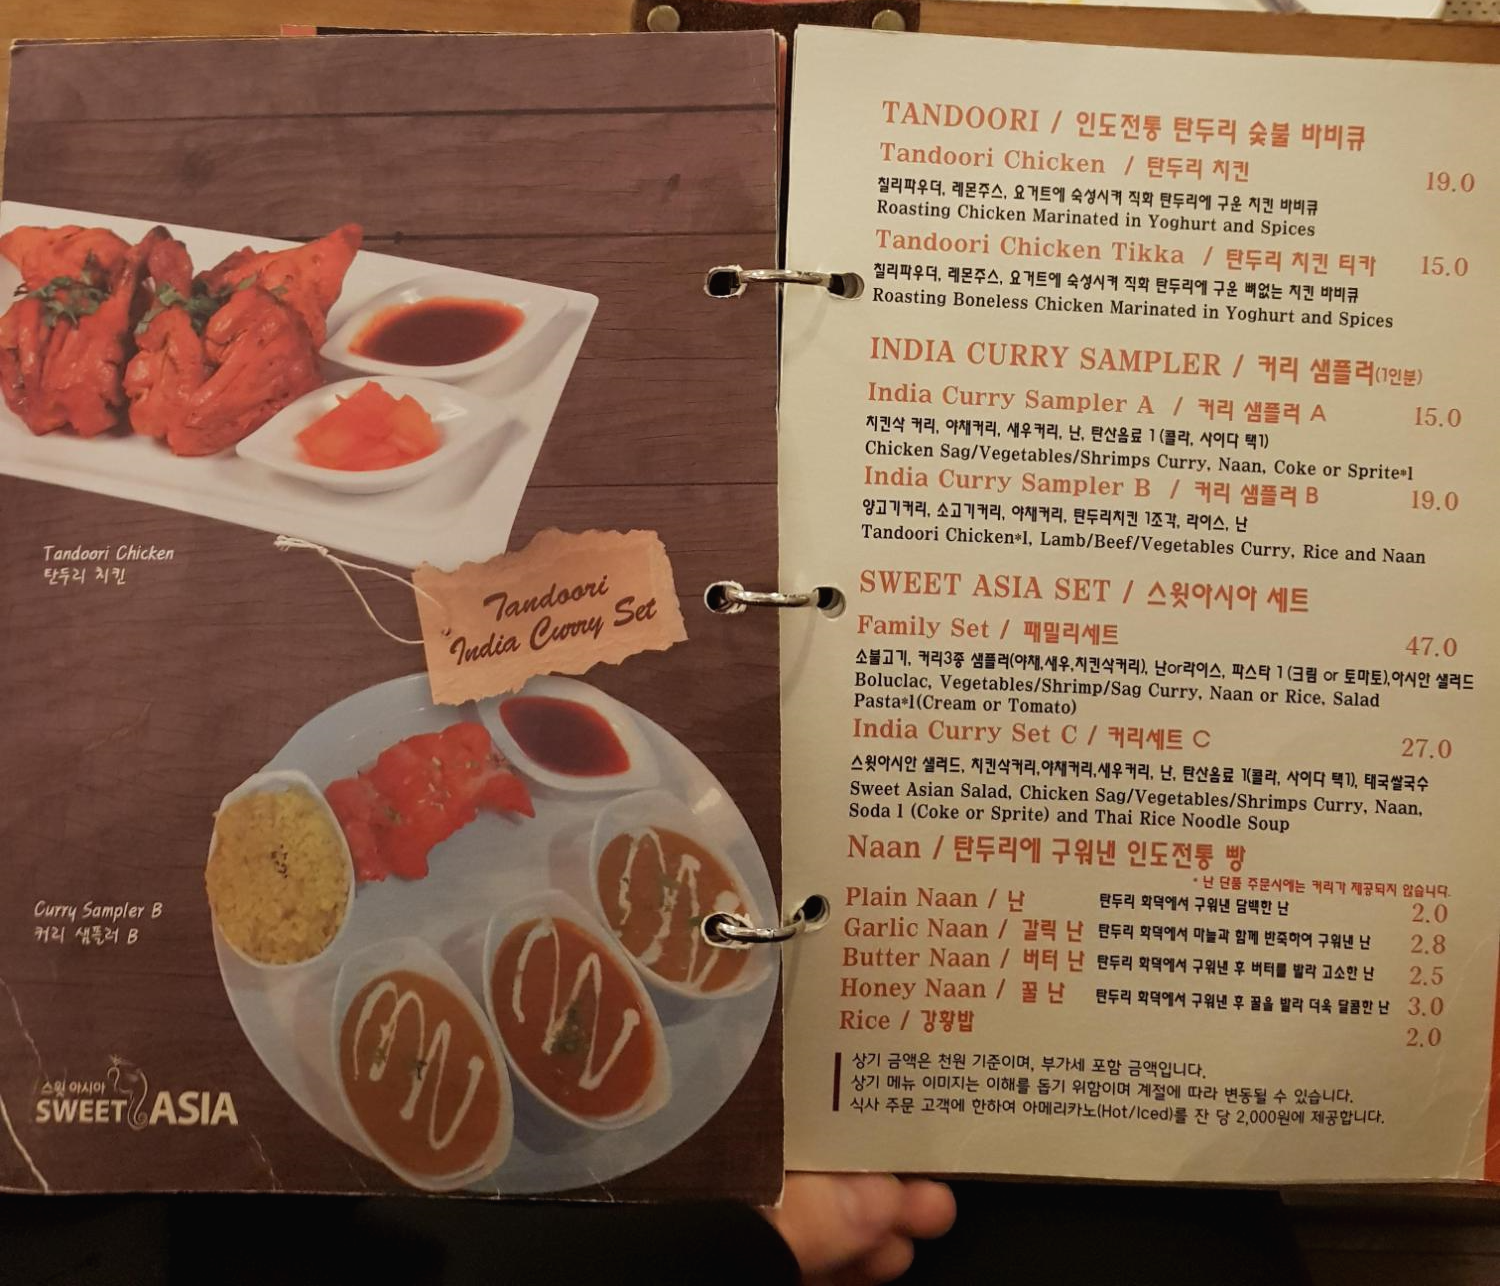 Tandoori Chicken
탄두리 치킨
Tandoori
India Curry Set
Curry Sampler B
커리 샘플러 B
스윗 아시아
SWEET ASIA
TANDOORI / 인도전통 탄두리 숯불 바비큐
Tandoori Chicken / 탄두리 치킨 19.0
칠리파우더, 레몬주스, 요거트에 숙성시켜 직화 탄두리에 구운 치킨 바비큐
Roasting Chicken Marinated in Yoghurt and Spices
Tandoori Chicken Tikka / 탄두리 치킨 티카 15.0
칠리파우더, 레몬주스, 요거트에 숙성시켜 직화 탄두리에 구운 뼈없는 치킨 바비큐
Roasting Boneless Chicken Marinated in Yoghurt and Spices
INDIA CURRY SAMPLER / 커리 샘플러(1인분)
India Curry Sampler A / 커리 샘플러 A 15.0
치킨삭 커리, 야채커리, 새우커리, 난, 탄산음료 1 (콜라, 사이다 택1)
Chicken Sag/Vegetables/Shrimps Curry, Naan, Coke or Sprite*1
India Curry Sampler B / 커리 샘플러 B 19.0
양고기커리, 소고기커리, 야채커리, 탄두리치킨 1조각, 라이스, 난
Tandoori Chicken*1, Lamb/Beef/Vegetables Curry, Rice and Naan
SWEET ASIA SET / 스윗아시아 세트
Family Set / 패밀리세트 47.0
소불고기, 커리3종 샘플러(야채,새우,치킨삭커리), 난or라이스, 파스타 1 (크림 or 토마토),아시안 샐러드
Boluclac, Vegetables/Shrimp/Sag Curry, Naan or Rice, Salad
Pasta*1(Cream or Tomato)
India Curry Set C / 커리세트 C 27.0
스윗아시안 샐러드, 치킨삭커리,야채커리,새우커리, 난, 탄산음료 1(콜라, 사이다 택1), 태국쌀국수
Sweet Asian Salad, Chicken Sag/Vegetables/Shrimps Curry, Naan,
Soda 1 (Coke or Sprite) and Thai Rice Noodle Soup
Naan / 탄두리에 구워낸 인도전통 빵
* 난 단품 주문시에는 커리가 제공되지 않습니다.
Plain Naan / 난 탄두리 화덕에서 구워낸 담백한 난 2.0
Garlic Naan / 갈릭 난 탄두리 화덕에서 마늘과 함께 반죽하여 구워낸 난 2.8
Butter Naan / 버터 난 탄두리 화덕에서 구워낸 후 버터를 발라 고소한 난 2.5
Honey Naan / 꿀 난 탄두리 화덕에서 구워낸 후 꿀을 발라 더욱 달콤한 난 3.0
Rice / 강황밥 2.0
상기 금액은 천원 기준이며, 부가세 포함 금액입니다.
상기 메뉴 이미지는 이해를 돕기 위함이며 계절에 따라 변동될 수 있습니다.
식사 주문 고객에 한하여 아메리카노(Hot/Iced)를 잔 당 2,000원에 제공합니다.